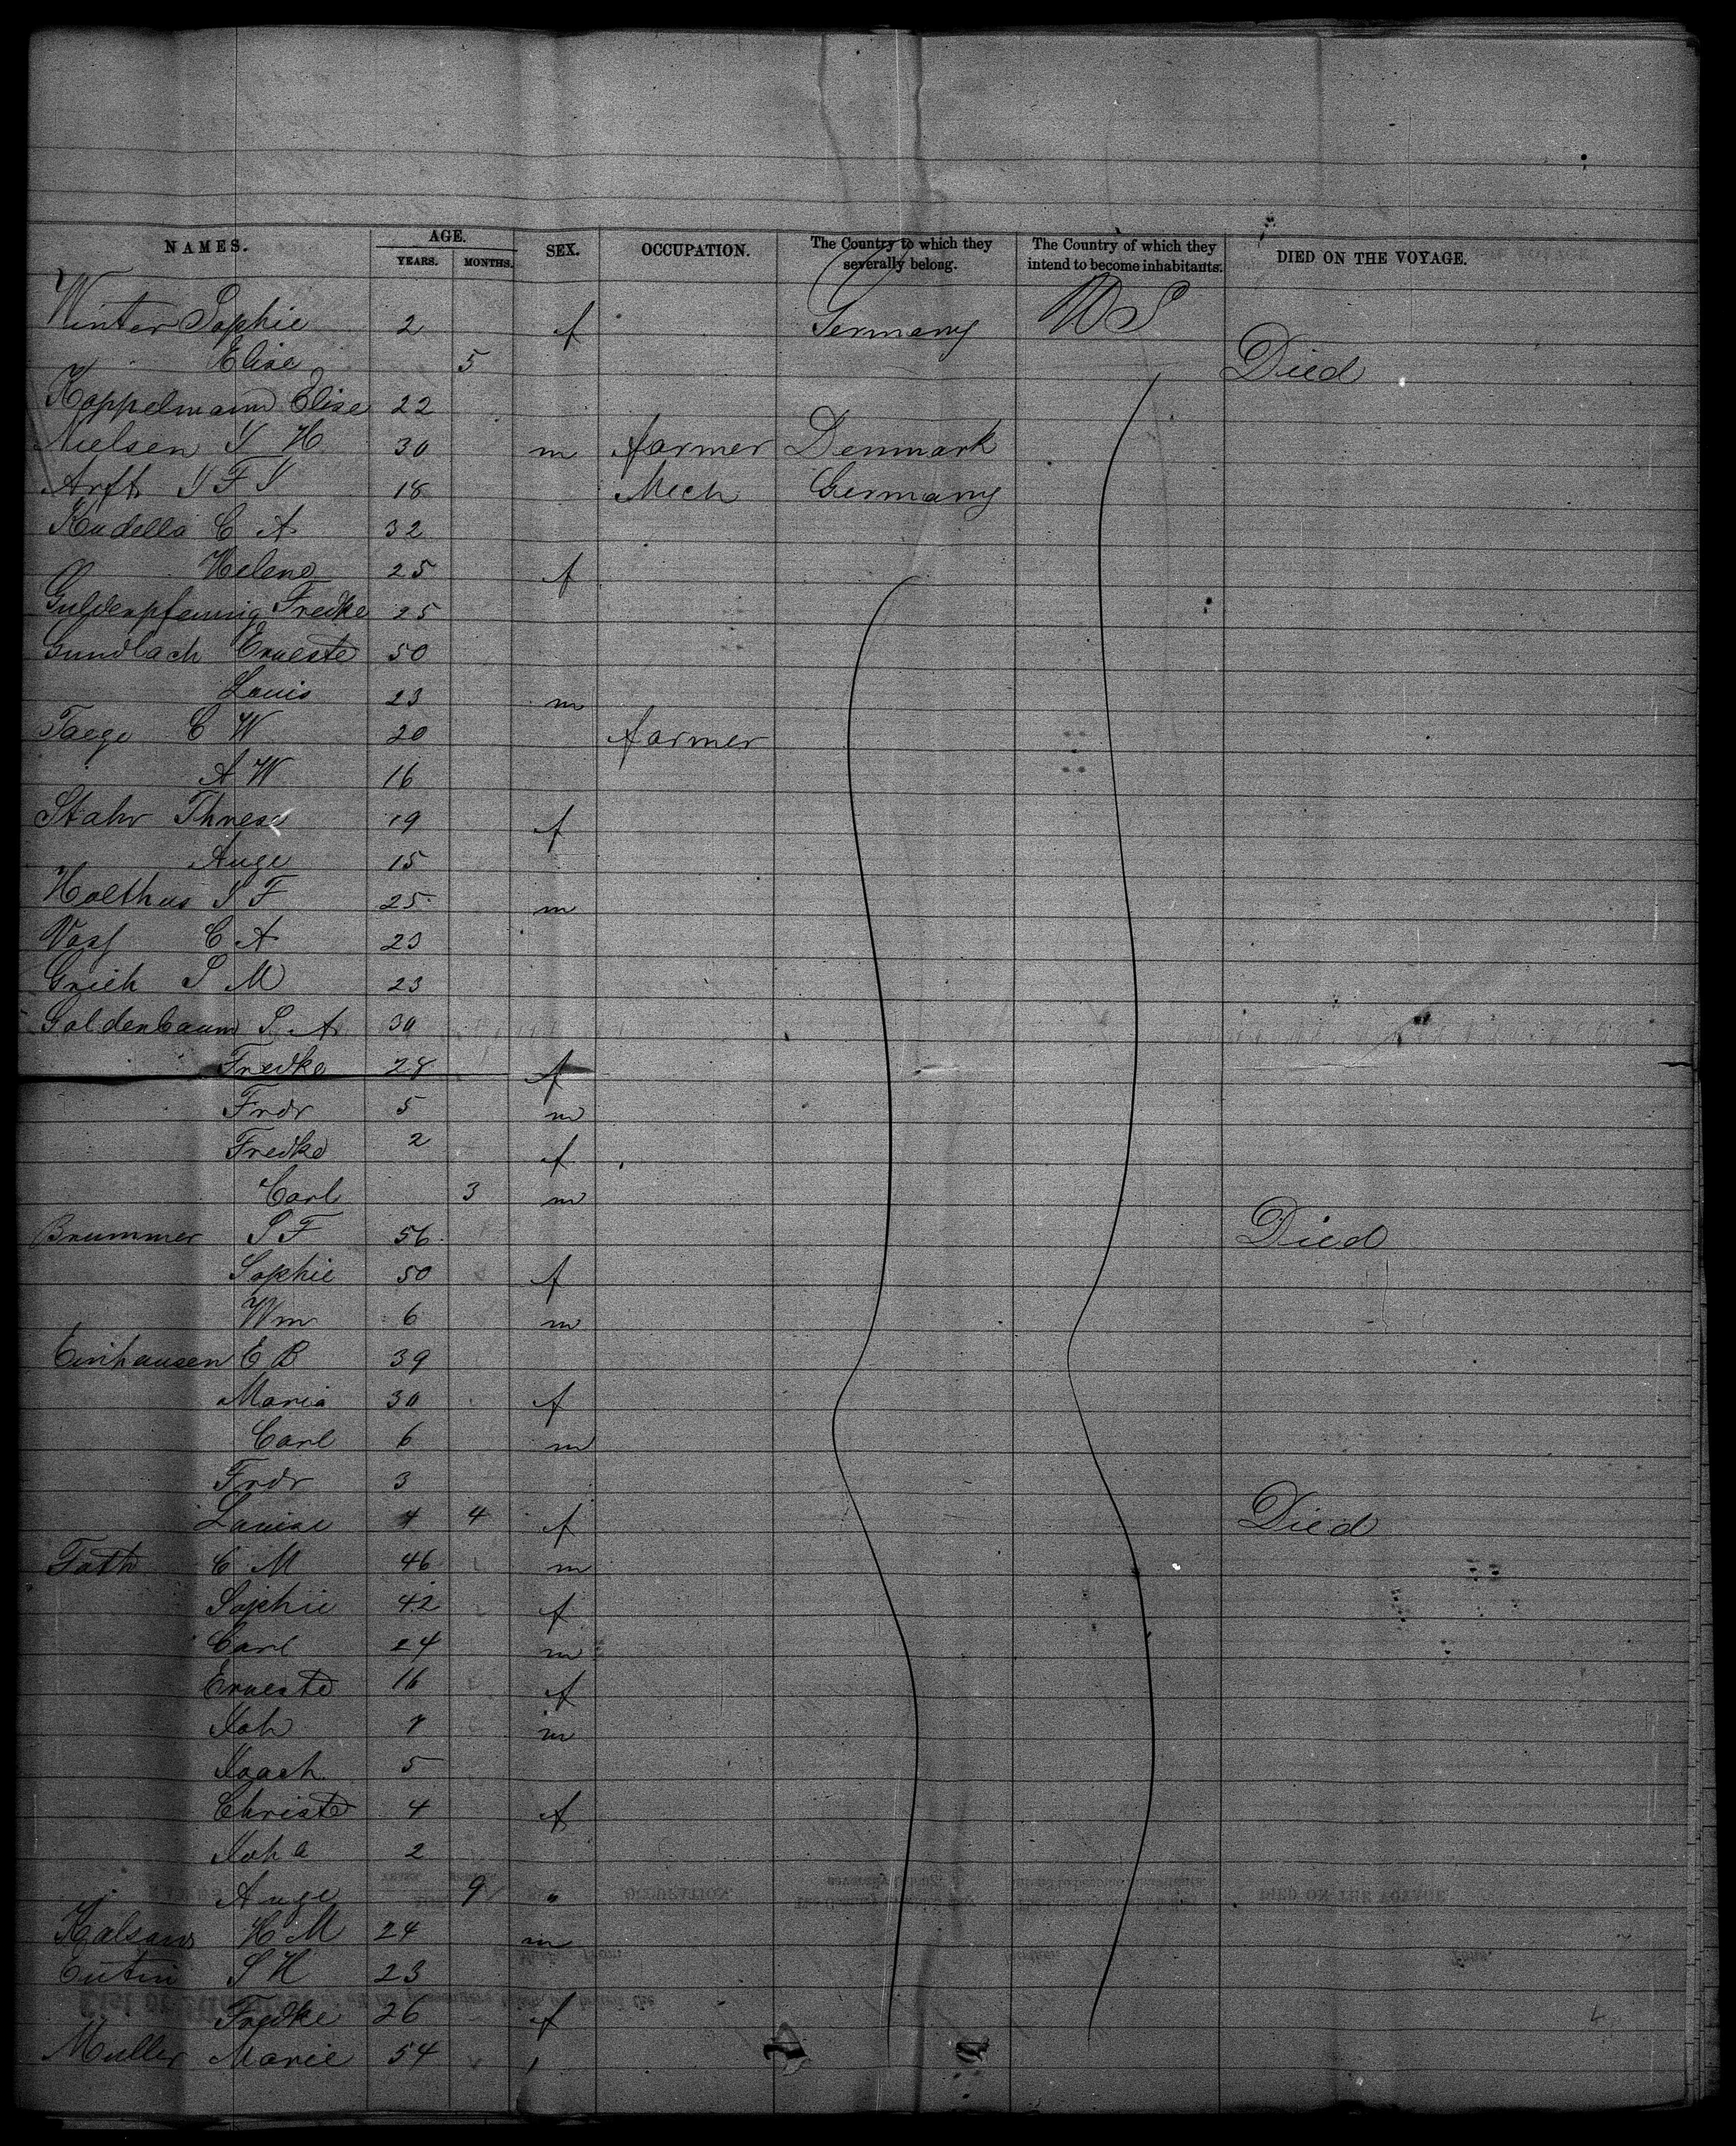 NAMES. AGE. SEX. OCCUPATION. The Country to which they severally belong. The Country of which they intend to become inhabitants. DIED ON THE VOYAGE.
YEARS. MONTHS.
Winter Sophie 2 f Germany U S
Elise 5 Died
Koppelmann Elise 22
Nielsen J H 30 m farmer Denmark
Arft J F J 18 Mech Germany
Kudella C A 32
Helene 25 f
Guldenpfennig Fredke 25
Gundlach Erneste 50
Louis 23 m
Taege C W 20 farmer
A W 16
Stahr Threse 19 f
Auge 15
Holthus J F 25 m
Vasf C A 23
Grieh J M 23
Goldenbaum J A 30
Fredke 28 f
Frdr 5 m
Fredke 2 f
Carl 3 m
Brummer J F 56 Died
Sophie 50 f
Wm 6 m
Einhausen E B 39
Maria 30 f
Carl 6 m
Frdr 3
Louise 4 4 f Died
Toth C M 46 m
Sophie 42 f
Carl 24 m
Erneste 16 f
Joh 7 m
Joach 5
Christe 4 f
Joha 2
Auge 9 "
H M 24 m
Eutin J H 23
Fredke 26 f
Muller Marie 54